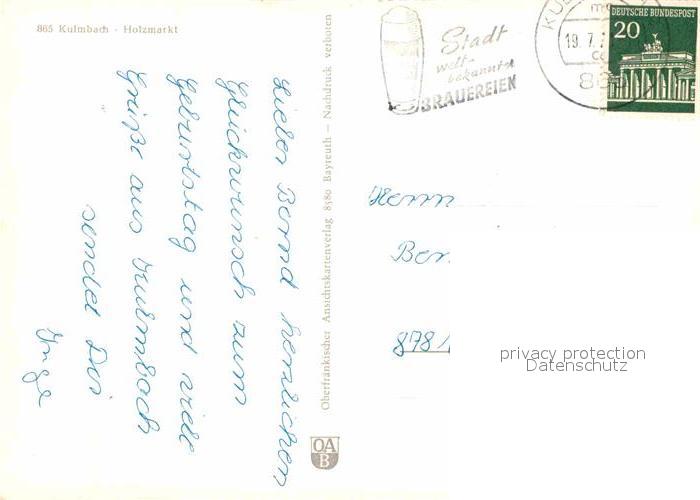 865 Kulmbach · Holzmarkt
Lieber Bernd herzlichen
Glückwunsch zum
Geburtstag und viele
Grüße aus Kulmbach
sendet Dir
Inge
Oberfränkischer Ansichtskartenverlag 8580 Bayreuth — Nachdruck verboten
OA
B
Stadt
welt-
bekannter
BRAUEREIEN
19.7.
DEUTSCHE BUNDESPOST
20
Herrn
Ber
8781
privacy protection
Datenschutz